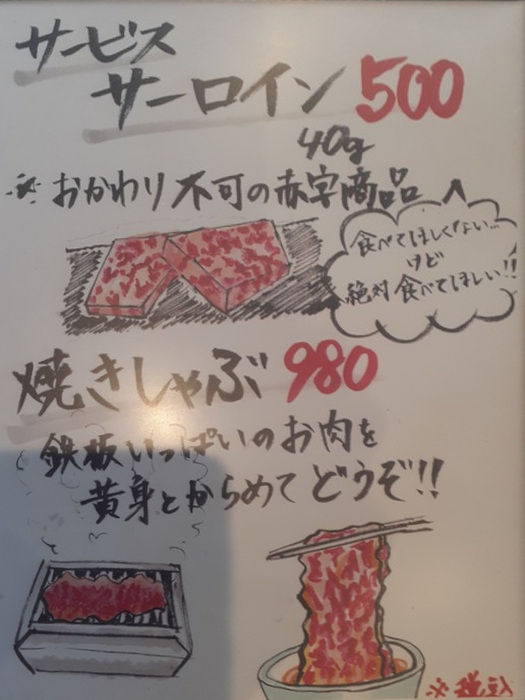 サービス
サーロイン 500
40g
※ おかわり不可の赤字商品
食べてほしくない...
けど
絶対食べてほしい!!
焼きしゃぶ 980
鉄板いっぱいのお肉を
黄身とからめてどうぞ!!
※税込